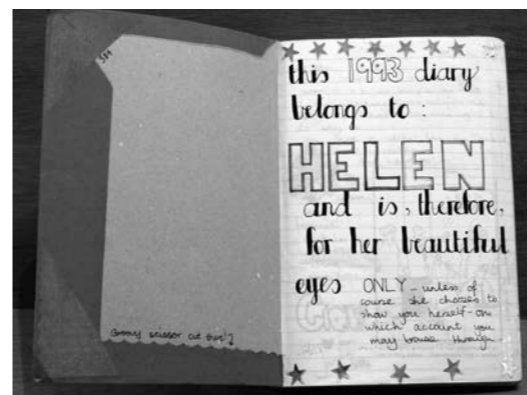 Groovy scissor cut this!?
this 1993 diary
belongs to :
HELEN
and is, therefore,
for her beautiful
eyes ONLY - unless of
course she chooses to
show you herself - on
which account you
may browse through